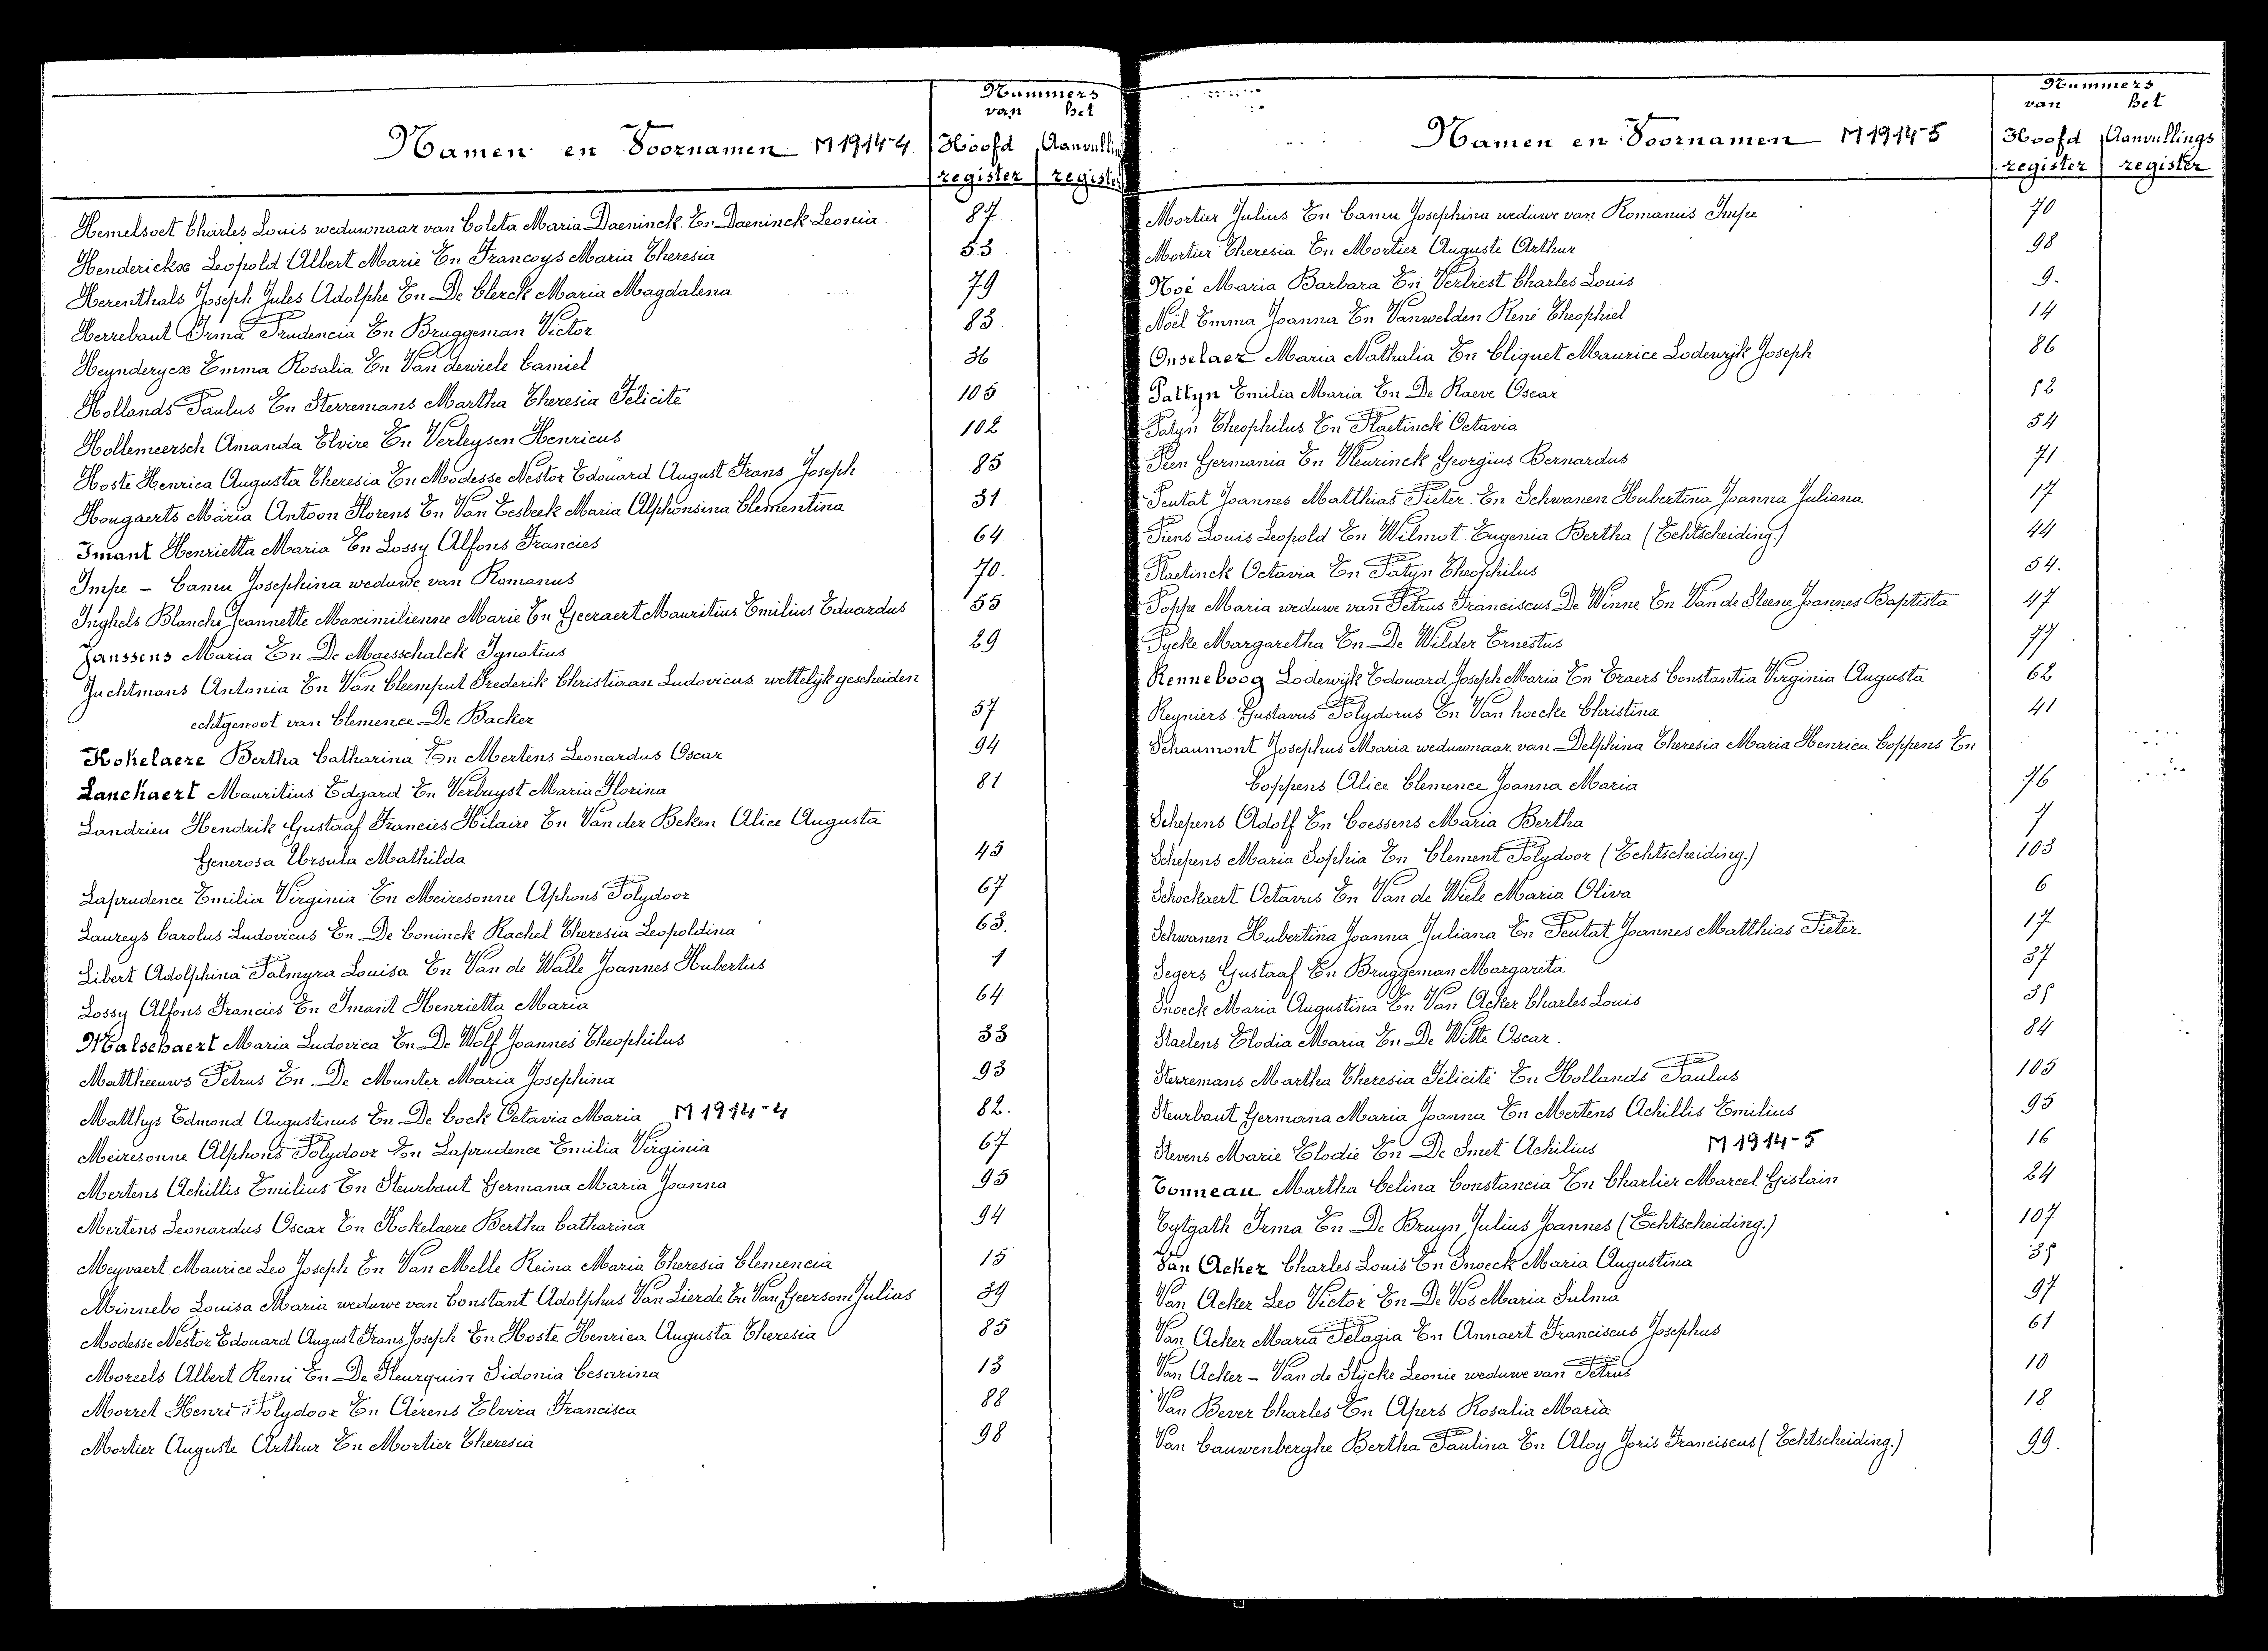 Nummers
van het
Namen en Voornamen M1914-4 Hoofd Aanvullin
register registe
Hemelsoet Charles Louis weduwnaar van Coleta Maria Daeninck En Daeninck Leonia 87
Henderickx Leopold Albert Marie En Francoys Maria Theresia 53
Herenthals Joseph Jules Adolphe En De Clerck Maria Magdalena 79
Herrebaut Irma Prudencia En Bruggeman Victor 83
Heynderycx Emma Rosalia En Van dewiele Camiel 36
Hollands Paulus En Sterremans Martha Theresia Félicité 105
Hollemeersch Amanda Elvire En Verleysen Henricus 102
Hoste Henrica Augusta Theresia En Modesse Nestor Edouard August Frans Joseph 85
Hougaerts Maria Antoon Florens En Van Eesbeek Maria Alphonsina Clementina 31
Imant Henrietta Maria En Lossy Alfons Francies 64
Impe - Camu Josephina weduwe van Romanus 70.
Inghels Blanche Jeannette Maximilienne Marie En Geeraert Mauritius Emilius Eduardus 55
Janssens Maria En De Maesschalck Ignatius 29
Juchtmans Antonia En Van Cleemput Frederik Christiaan Ludovicus wettelijk gescheiden
echtgenoot van Clemence De Backer 57
Kokelaere Bertha Catharina En Mertens Leonardus Oscar 94
Lanckaert Mauritius Edgard En Verbuyst Maria Florina 81
Landrieu Hendrik Gustaaf Francies Hilaire En Van der Beken Alice Augusta
Generosa Ursula Mathilda 45
Laprudence Emilia Virginia En Meiresonne Aphons Polydoor 67
Laureys Carolus Ludovicus En De Coninck Rachel Theresia Leopoldina 63.
Libert Adolphina Palmyra Louisa En Van de Walle Joannes Hubertus 1
Lossy Alfons Francies En Imant Henrietta Maria 64
Malschaert Maria Ludovica En De Wolf Joannes Theophilus 33
Mattheeuws Petrus En De Munter Maria Josephina 93
Matthys Edmond Augustinus En De Cock Octavia Maria M1914-4 82.
Meiresonne Alphons Polydoor En Laprudence Emilia Virginia 67
Mertens Achillis Emilius En Steurbaut Germana Maria Joanna 95
Mertens Leonardus Oscar En Kokelaere Bertha Catharina 94
Meyvaert Maurice Leo Joseph En Van Melle Reina Maria Theresia Clemencia 15
Minnebo Louisa Maria weduwe van Constant Adolphus Van Lierde En Van Geersom Julius 39
Modesse Nestor Edouard August Frans Joseph En Hoste Henrica Augusta Theresia 85
Moreels Albert Remi En De Fleurquin Sidonia Cesarina 13
Morret Henri Polydoor En Aerens Elvira Francisca 88
Mortier Auguste Arthur En Mortier Theresia 98
Nummers
van het
Namen en Voornamen M1914-5 Hoofd Aanvullings
register register
Mortier Julius En Camu Josephina weduwe van Romanus Impe 70
Mortier Theresia En Mortier Auguste Arthur 98
Noé Maria Barbara En Verliest Charles Louis 9.
Noël Emma Joanna En Vanwelden René Theophiel 14
Onselaer Maria Nathalia En Cliquet Maurice Lodewijk Joseph 86
Pattyn Emilia Maria En De Raeve Oscar 12
Patyn Theophilus En Plaetinck Octavia 54
Peen Germania En Vleurinck Georgius Bernardus 71
Peutat Joannes Matthias Pieter En Schwanen Hubertina Joanna Juliana 17
Piens Louis Leopold En Wilmot Eugenia Bertha (Echtscheiding.) 44
Plaetinck Octavia En Patyn Theophilus 54.
Poppe Maria weduwe van Petrus Franciscus De Winne En Van de Steene Joannes Baptista 47
Pycke Margaretha En De Wilder Ernestus 77
Renneboog Lodewijk Edouard Joseph Maria En Traers Constantia Virginia Augusta 62
Reyniers Gustavus Polydorus En Van hoecke Christina 41
Schaumont Josephus Maria weduwnaar van Delphina Theresia Maria Henrica Coppens En
Coppens Alice Clemence Joanna Maria 76
Schepens Adolf En Coessens Maria Bertha 7
Schepens Maria Sophia En Clement Polydoor (Echtscheiding.) 103
Schockaert Octavus En Van de Wiele Maria Oliva 6
Schwanen Hubertina Joanna Juliana En Peutat Joannes Matthias Pieter 17
Segers Gustaaf En Bruggeman Margareta 37
Snoeck Maria Augustina En Van Acker Charles Louis 35
Staelens Elodia Maria En De Witte Oscar. 84
Sterremans Martha Theresia Félicité En Hollands Paulus 105
Steurbaut Germana Maria Joanna En Mertens Achillis Emilius 95
Stevens Marie Elodie En De Smet Achilius M1914-5 16
Tonneau Martha Celina Constancia En Charlier Marcel Gislain 24
Tytgath Irma En De Bruyn Julius Joannes (Echtscheiding.) 107
Van Acker Charles Louis En Snoeck Maria Augustina 35
Van Acker Leo Victor En De Vos Maria Sulma 97
Van Acker Maria Pelagia En Annaert Franciscus Josephus 61
Van Acker - Van de Slycke Leonie weduwe van Petrus 10
Van Bever Charles En Apers Rosalia Maria 18
Van Cauwenberghe Bertha Paulina En Aloy Joris Franciscus (Echtscheiding.) 99.